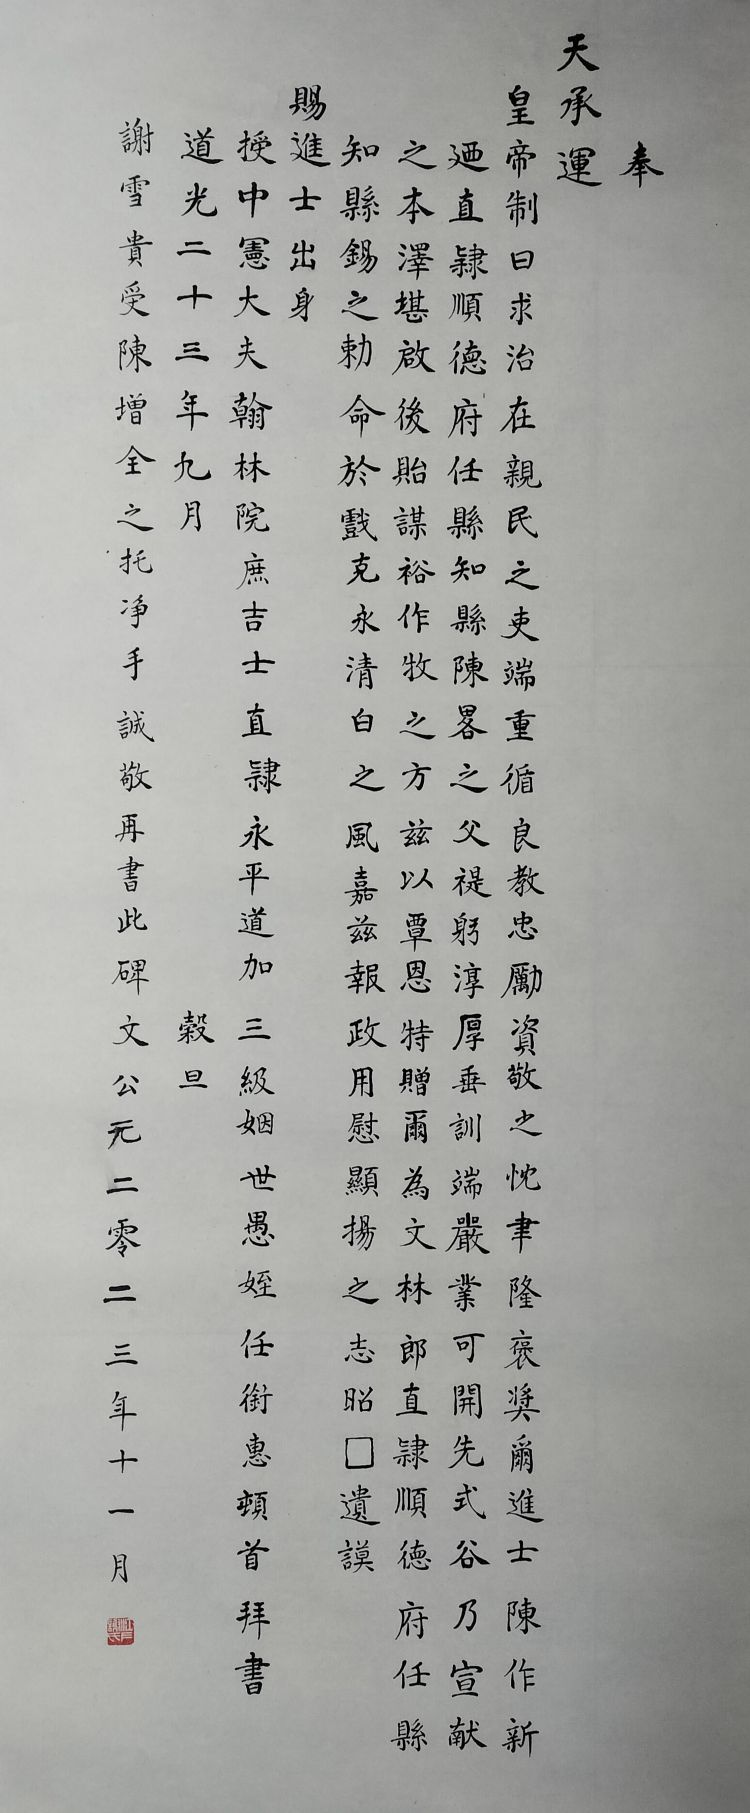 奉
天承運
皇帝制曰求治在親民之吏端重循良教忠勵資敬之忱聿隆褒奖爾進士陳作新
廼直隸順德府任縣知縣陳畧之父禔躬淳厚垂訓端嚴業可開先式谷乃宣献
之本澤堪啟後貽謀裕作牧之方兹以覃恩特贈爾為文林郎直隸順德府任縣
知縣錫之勅命於戲克永清白之風嘉兹報政用慰顯揚之志昭□遺謨
賜進士出身
授中憲大夫翰林院庶吉士直隸永平道加三級姻世愚姪任銜惠頓首拜書
道光二十三年九月穀旦
謝雪貴受陳增全之托净手誠敬再書此碑文公元二零二三年十一月